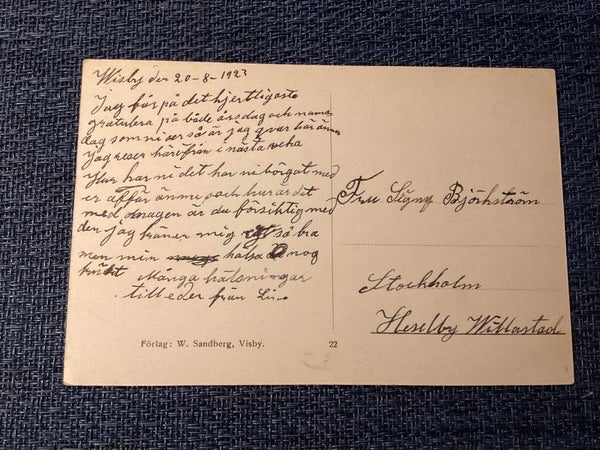 Wisby den 20-8-1923
Jag får på det hjertligaste
gratulera på både årsdag och namns
dag som ni ser så är jag qvar här ännu
Jag reser härifrån i nästa veka
Hur har ni det har ni börgat med
er affär ännu, och hur är det
med magen är du försiktig med
den jag käner mig så bra
men min hälsa nog
Många hälsningar
till eder från Li
Fru Signy Björkström
Stockholm
Heselby Willastad
Förlag: W. Sandberg, Visby.
22